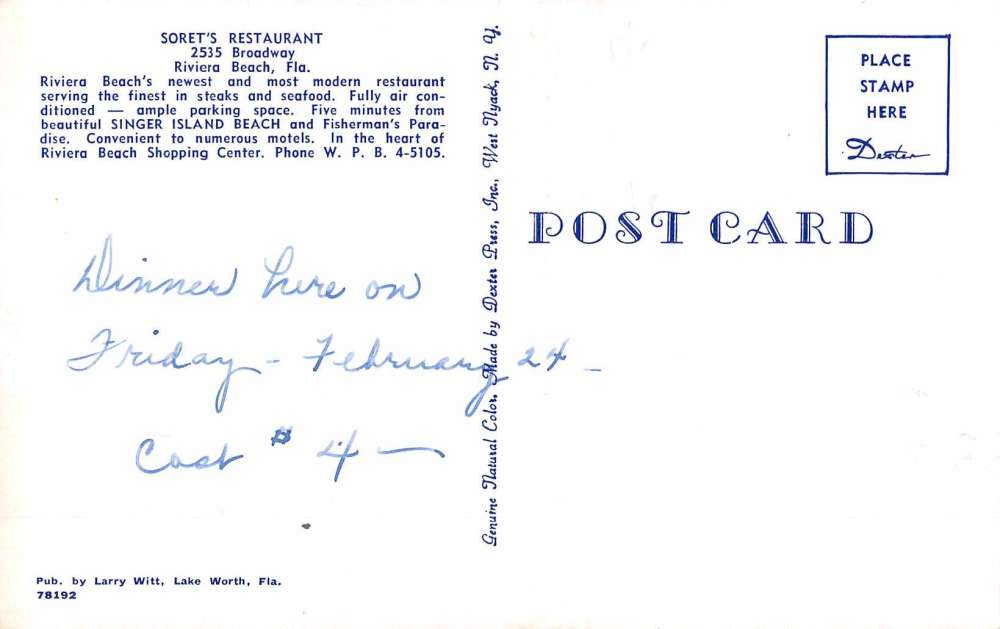 SORET'S RESTAURANT
2535 Broadway
Riviera Beach, Fla.
Riviera Beach's newest and most modern restaurant
serving the finest in steaks and seafood. Fully air con-
ditioned — ample parking space. Five minutes from
beautiful SINGER ISLAND BEACH and Fisherman's Para-
dise. Convenient to numerous motels. In the heart of
Riviera Beach Shopping Center. Phone W. P. B. 4-5105.
Dinner here on
Friday - February 24 -
Cost $ 4 —
Pub. by Larry Witt, Lake Worth, Fla.
78192
Genuine Natural Color, Made by Dexter Press, Inc., West Nyack, N. Y.
PLACE
STAMP
HERE
Dexter
POST CARD